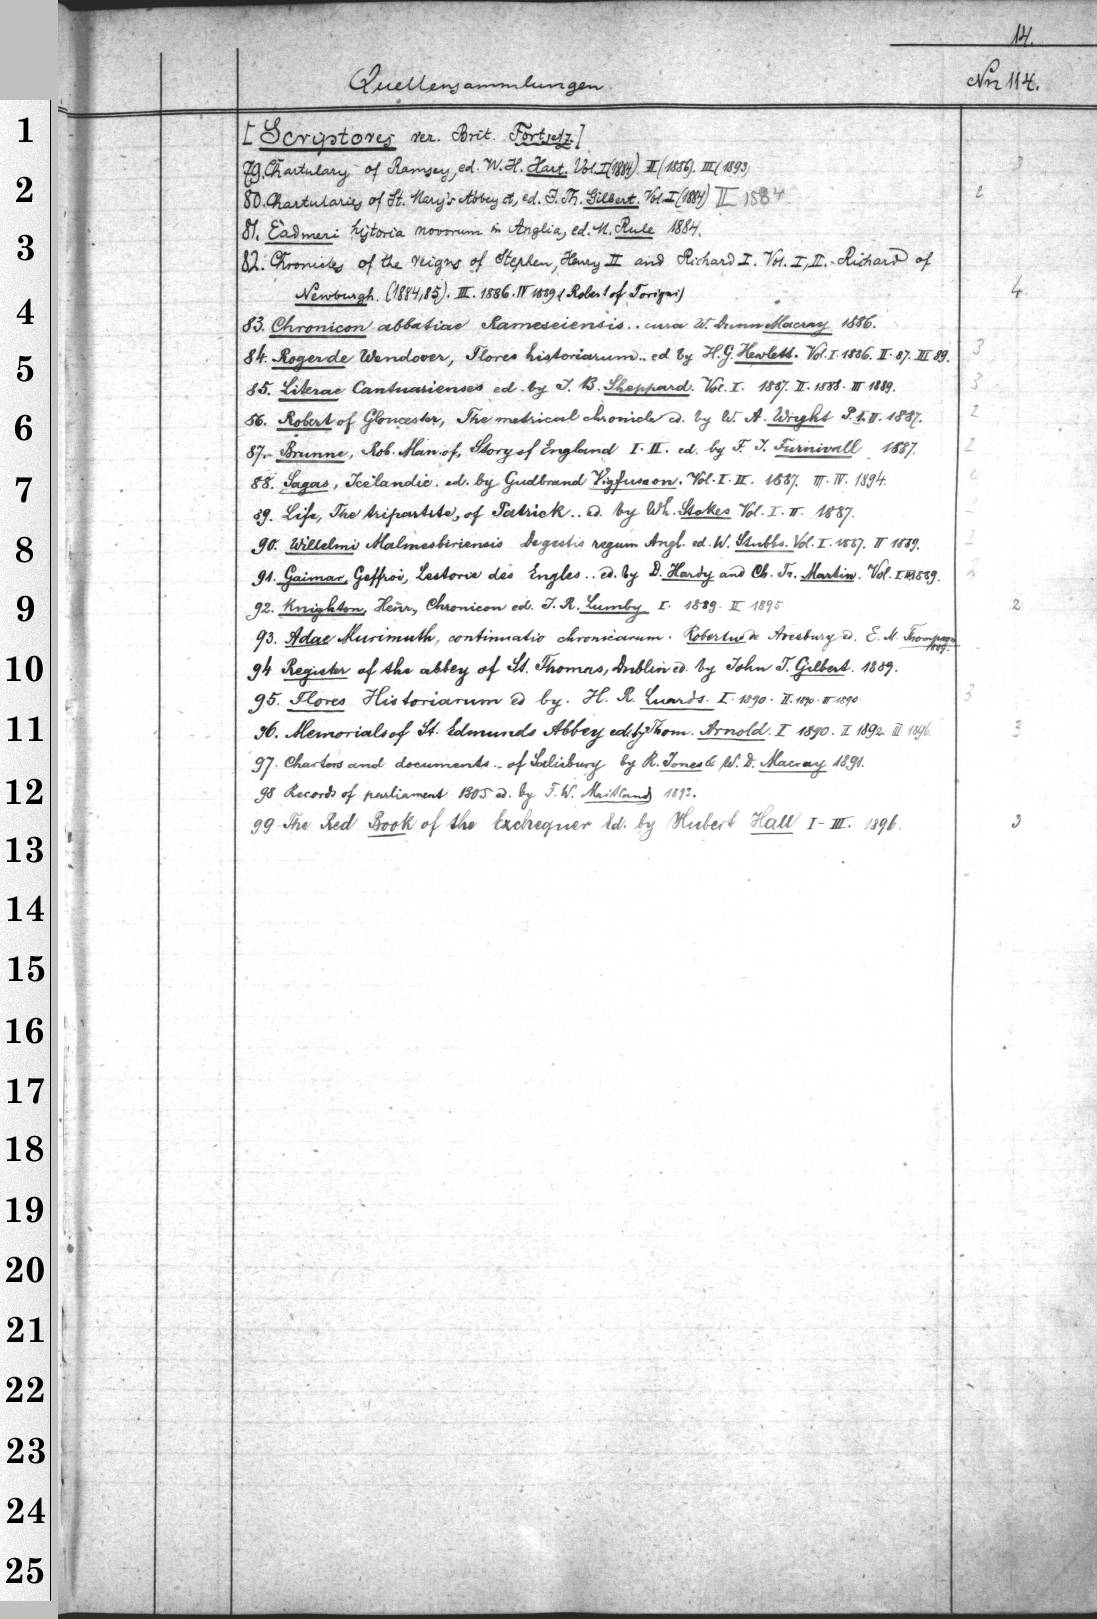 14.
Quellensammlungen
Nr. 114.
[Scriptores rer. Brit. Fortsetz.]
79. Chartulary of Ramsey, ed. W. H. Hart. Vol. I (1884) II (1886). III (1893) 3
80. Chartularies of St. Mary's Abbey d, ed. J. Th. Gilbert. Vol. I (1884) II 1884 2
81. Eadmeri historia novorum in Anglia, ed. M. Rule 1884.
82. Chronicles of the reigns of Stephen, Henry II and Richard I. Vol. I, II. Richard of
Newburgh. (1884, 85). III. 1886. IV 1889 (Robert of Torigni) 4
83. Chronicon abbatiae Rameseiensis.. cura W. Dunn Macray 1886.
84. Roger de Wendover, Flores historiarum.. ed by H. G. Hewlett. Vol. I. 1886. II. 87. III 89. 3
85. Literae Cantuarienses ed. by J. B. Sheppard. Vol. I. 1887. II. 1888. III 1889. 3
86. Robert of Gloucester, The metrical chronicle ed. by W. A. Wright P. I. II. 1887. 2
87. Brunne, Rob. Man. of, Story of England I. II. ed. by F. J. Furnivall 1887. 2
88. Sagas, Icelandic. ed. by Gudbrand Vigfusson. Vol. I. II. 1887. III. IV. 1894.
89. Life, The tripartite, of Patrick.. ed. by Wh. Stokes Vol. I. II. 1887.
90. Willelmi Malmesbiriensis De gestis regum Angl. ed. W. Stubbs. Vol. I. 1887. II 1889. 2
91. Gaimar, Geffroi, Lestorie des Engles.. ed. by D. Hardy and Ch. Tr. Martin. Vol. I. II 1889. 2
92. Knighton, Henr., Chronicon ed. J. R. Lumby I. 1889. II 1895 2
93. Adae Murimuth, continuatio chronicarum. Robertus de Avesbury ed. E. M. Thompson 1889.
94 Register of the abbey of St. Thomas, Dublin ed. by John T. Gilbert. 1889.
95. Flores Historiarum ed by. H. R. Luards. I. 1890. II. 1890. III 1890 3
96. Memorials of St. Edmunds Abbey ed. by Thom. Arnold. I 1890. II 1892. III 1896. 3
97. Charters and documents.. of Salisbury by R. Jones & W. D. Macray 1891.
98 Records of parliament 1305 ed. by F. W. Maitland 1893.
99 The Red Book of the Exchequer Ed. by Hubert Hall I - III. 1896. 3
1
2
3
4
5
6
7
8
9
10
11
12
13
14
15
16
17
18
19
20
21
22
23
24
25